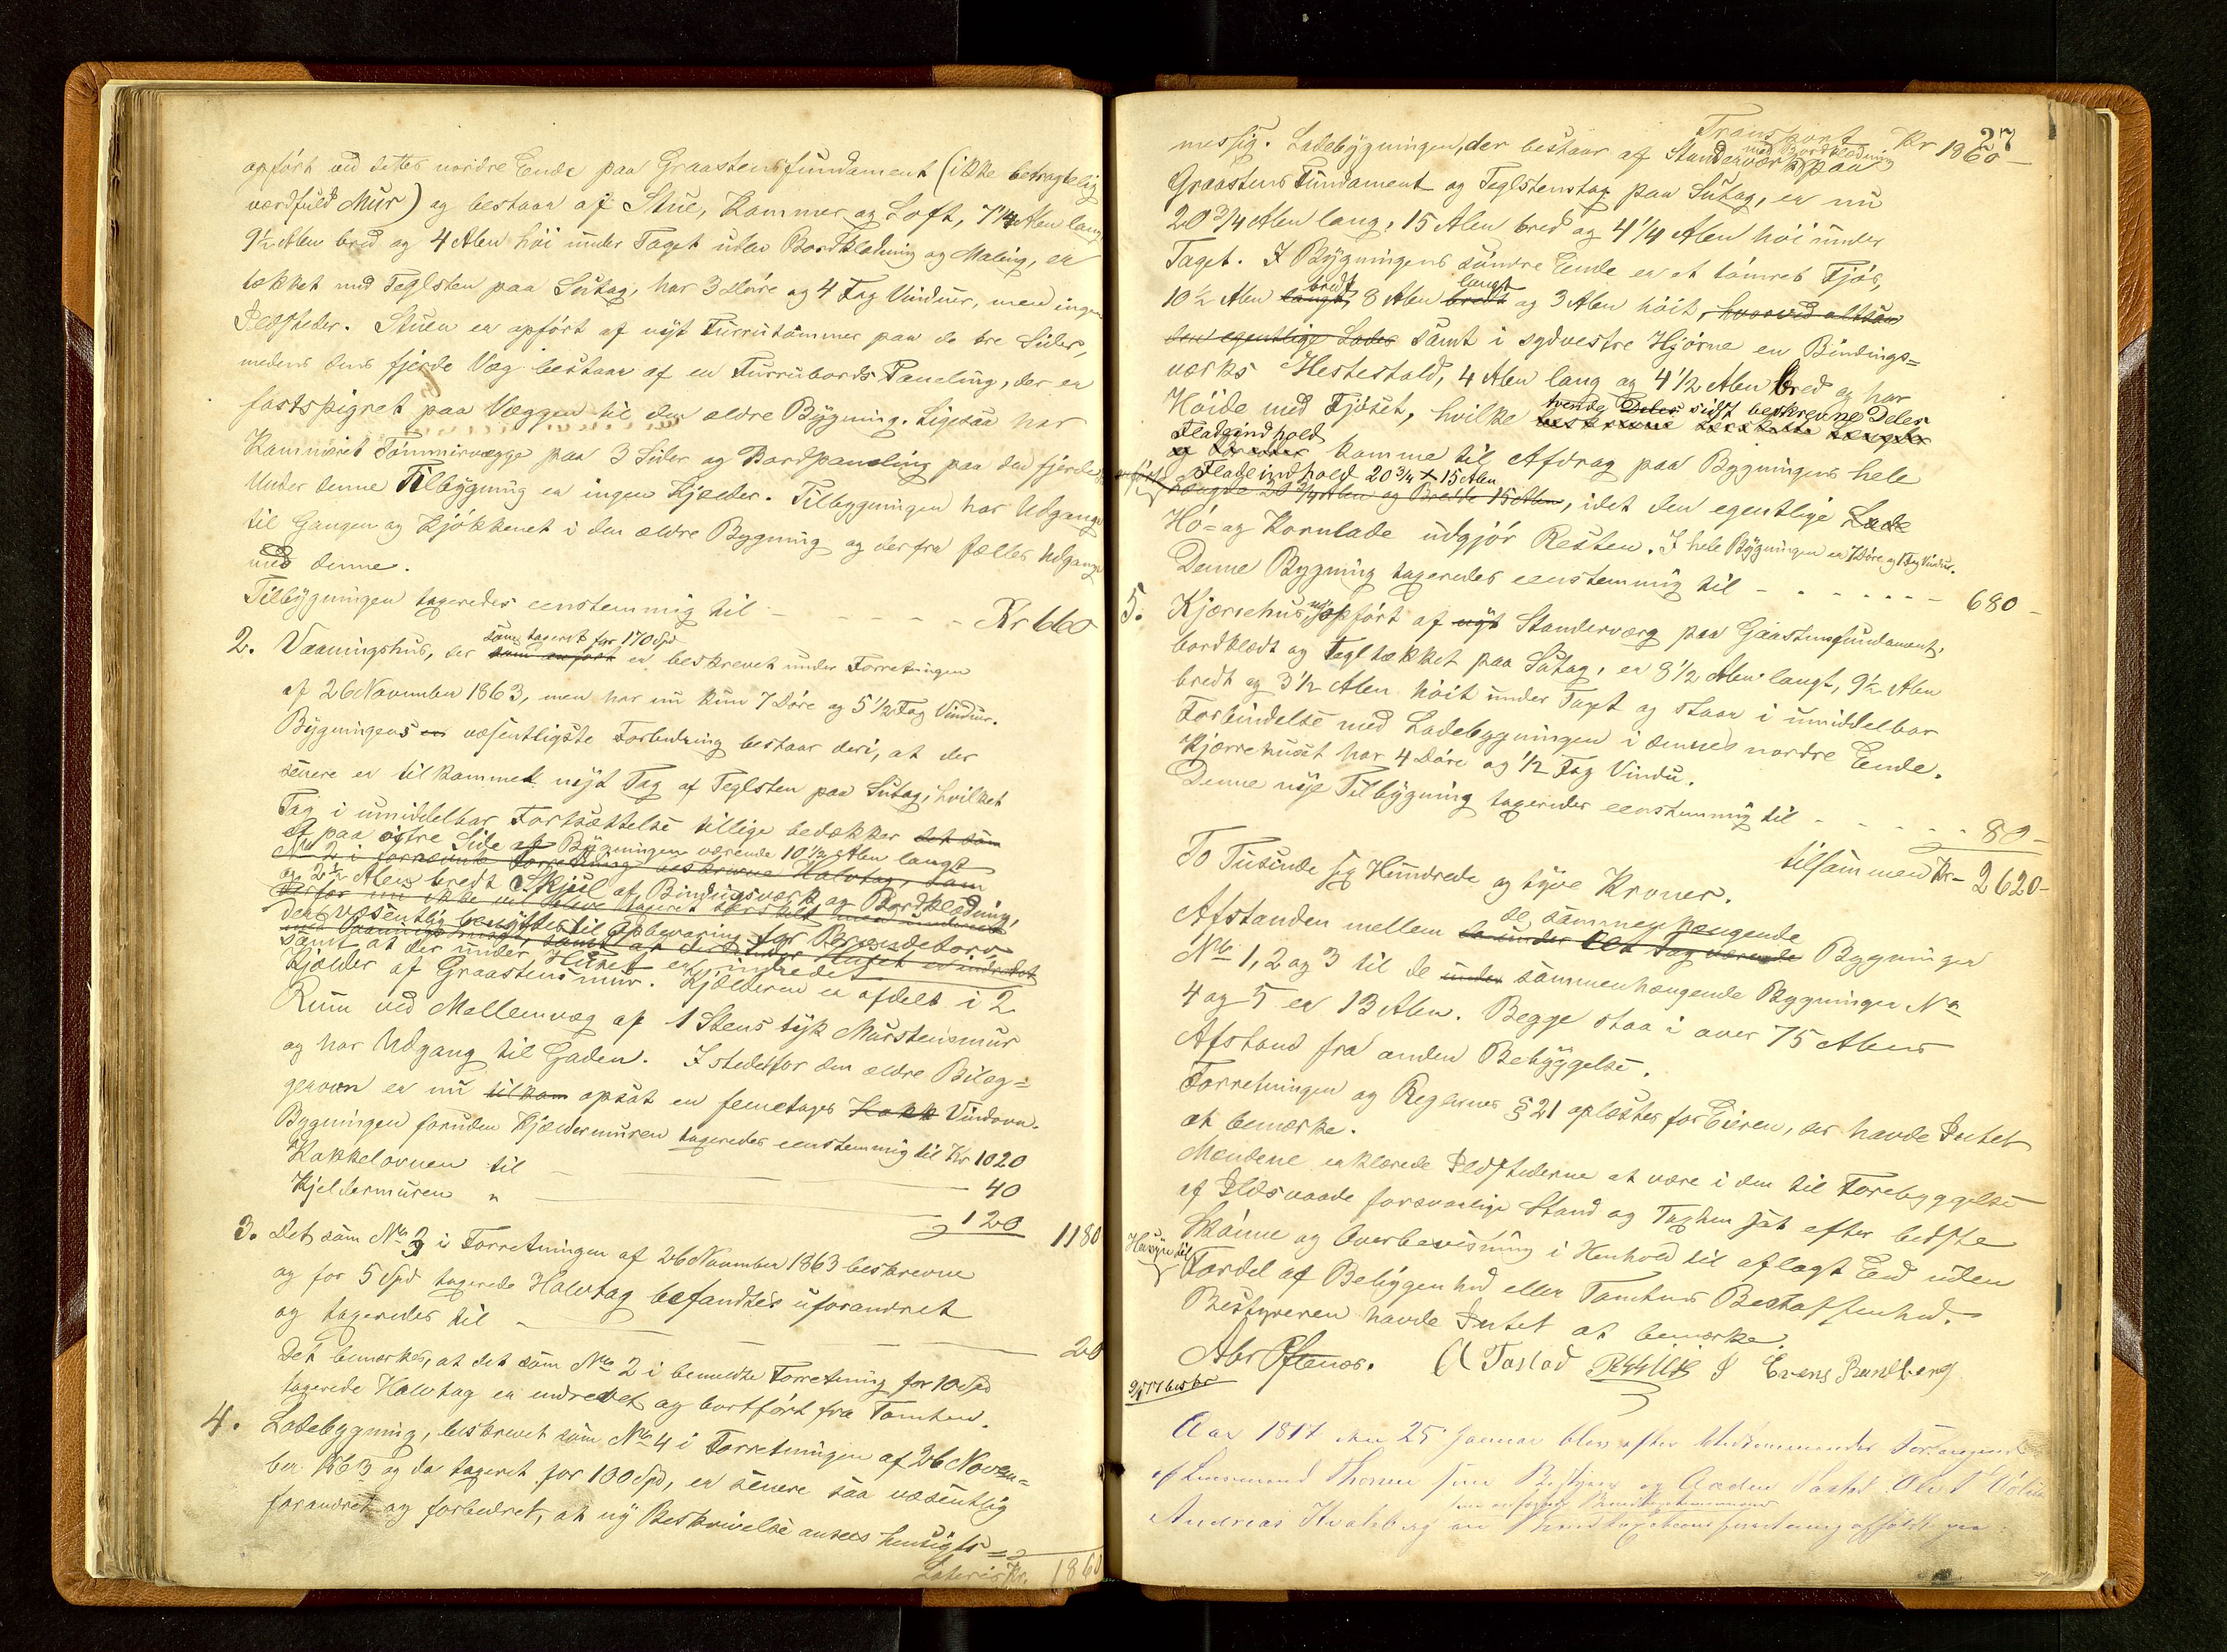 opført ved dettes nordre Ende paa Graastensfundament (ikke betragtelig
værdfuld Mur) og bestaar af Stue, Kammer og Loft, 7 1/4 Alen lang
9 1/2 Alen bred og 4 Alen höi under Taget uden Bordklædning og Maling, er
tækket med Teglsten paa Sutag, har 3 Döre og 4 Fag Vinduer, men ingen
Ildsteder. Stuen er opfört af nyt Furrutömmer paa de tre Sider,
medens dens fjerde Væg bestaar af en Furrubords Paneling, der er
fastspigret paa Væggen til den ældre Bygning. Ligesaa har
Kammeret Tömmervægge paa 3 Sider og Bordpaneling paa den fjerde.
Under denne Tilbygning er ingen Kjælder. Tilbygningen har Udgange
til Gangen og Kjökkenet i den ældre Bygning og derfra fælles Udgange
med denne.
Tilbygningen taxeredes eenstemmig til - - - - - - Kr 660
2. Vaaningshus, der som taxeret for 170 Spd er beskrevet under Forretningen
af 26 November 1863, men har nu kun 7 Döre og 5 1/2 Fag Vinduer.
Bygningens væsentligste Forbedring bestaar deri, at der
senere er tilkommet nyt Tag af Teglsten paa Sutag, hvilket
Tag i umiddelbar Fortsættelse tillige bedækker det som
et paa östre Side af Bygningen værende 10 1/2 Alen langt
No 2 i fornævnte Forretning beskrevne Halvtag, som
og 2 1/2 Alen bredt Skjul af Bindingsværk og Bordklædning,
der væsentlig benyttes til Opbevaring for Brændetorv
samt at der under Huset er indredet
Kjælder af Graastensmur. Kjælderen er afdelt i 2
Rum ved Mellemvæg af 1 Stens tyk Murstensmur
og har Udgang til Gaden. Istedetfor den ældre Bilæg=
gerovn er nu tilkom opsat en femetages Kakk Vindovn.
Bygningen foruden Kjældermuren taxeredes eenstemmig til Kr 1020
Kakkelovnen til 40
Kjeldermuren " 120 1180
3. Det som No 3 i Forretningen af 26 November 1863 beskrevne
og for 5 Spd taxerede Halvtag befandtes uforandret
og taxeredes til 20
Det bemærkes, at det som No 2 i bemeldte Forretning for 10 Spd
taxerede Halvtag er nedrevet og bortfört fra Tomten.
4. Ladebygning, beskrevet som No 4 i Forretningen af 26 Novem=
ber 1863 og da taxeret for 100 Spd, er senere saa væsentlig
forandret og forbedret, at ny Beskrivelse ansees hensigts=
Lateris Kr. 1860
27
Transport Kr 1860
messig. Ladebygningen, der bestaar af Standerværk med Bordklædning paa
Graastens Fundament og Teglstenstag paa Sutag, er nu
20 3/4 Alen lang, 15 Alen bred og 4 1/4 Alen höi under
Taget. I Bygningens söndre Ende er et tömret Fjös,
10 1/2 Alen langt bredt, 8 Alen bredt langt og 3 Alen höit, hvorved altsaa
den egentlige Lades samt i sydvestre Hjörne en Bindings=
værks Hestestald, 4 Alen lang og 4 1/2 Alen bred og har
Höide med Fjöset, hvilke tvende Deler sidst beskrevne Deler
Fladeindhold komme til Afdrag paa Bygningens hele
anfört Fladeindhold 20 3/4 x 15 Alen
Længde 20 3/4 Alen og Bredde 15 Alen, idet den egentlige Lade
Hö= og Kornlade udgjör Resten. I hele Bygningen er 7 Döre og 1 Fag Vindu.
Denne Bygning taxeredes eenstemmig til - - - - - - - 680 -
5. Kjærrehus, opfört af nyt Standerværg paa Graastensfundament,
bordklædt og Tegltækket paa Sutag, er 8 1/2 Alen langt, 9 1/2 Alen
bredt og 3 1/2 Alen höit under Taget og staar i umiddelbar
Forbindelse med Ladebygningen i dennes nordre Ende.
Kjærrehuset har 4 Döre og 1/2 Fag Vindu.
Denne nye Tilbygning taxeredes eenstemmig til - - - - - 80 -
tilsammen Kr 2620 -
To Tusinde sex Hundrede og tyve Kroner.
Afstanden mellem de sammenhængende
de under eet Tag værende Bygninger
No 1, 2 og 3 til de under sammenhængende Bygninger No
4 og 5 er 13 Alen. Begge staa i over 75 Alens
Afstand fra anden Bebyggelse.
Forretningen og Reglernes § 21 oplæstes for Eieren, der havde Intet
at bemærke.
Mendene erklærede Ildstederne at være i den til Forebyggelse
af Ildsvaade forsvarlige Stand og Taxten sat efter bedste
Skjönne og Overbevisning i Henhold til aflagt Eed uden
Hensyn til
Fordel af Beliggenhed eller Tomtens Beskaffenhed.
Bestyreren havde Intet at bemærke.
Abr Oftenæs. A Tastad Evens Rundberg
Aar 1877 den 25 Januar blev efter
af Lensmand Thorsen som Bestyrer og
Andreas